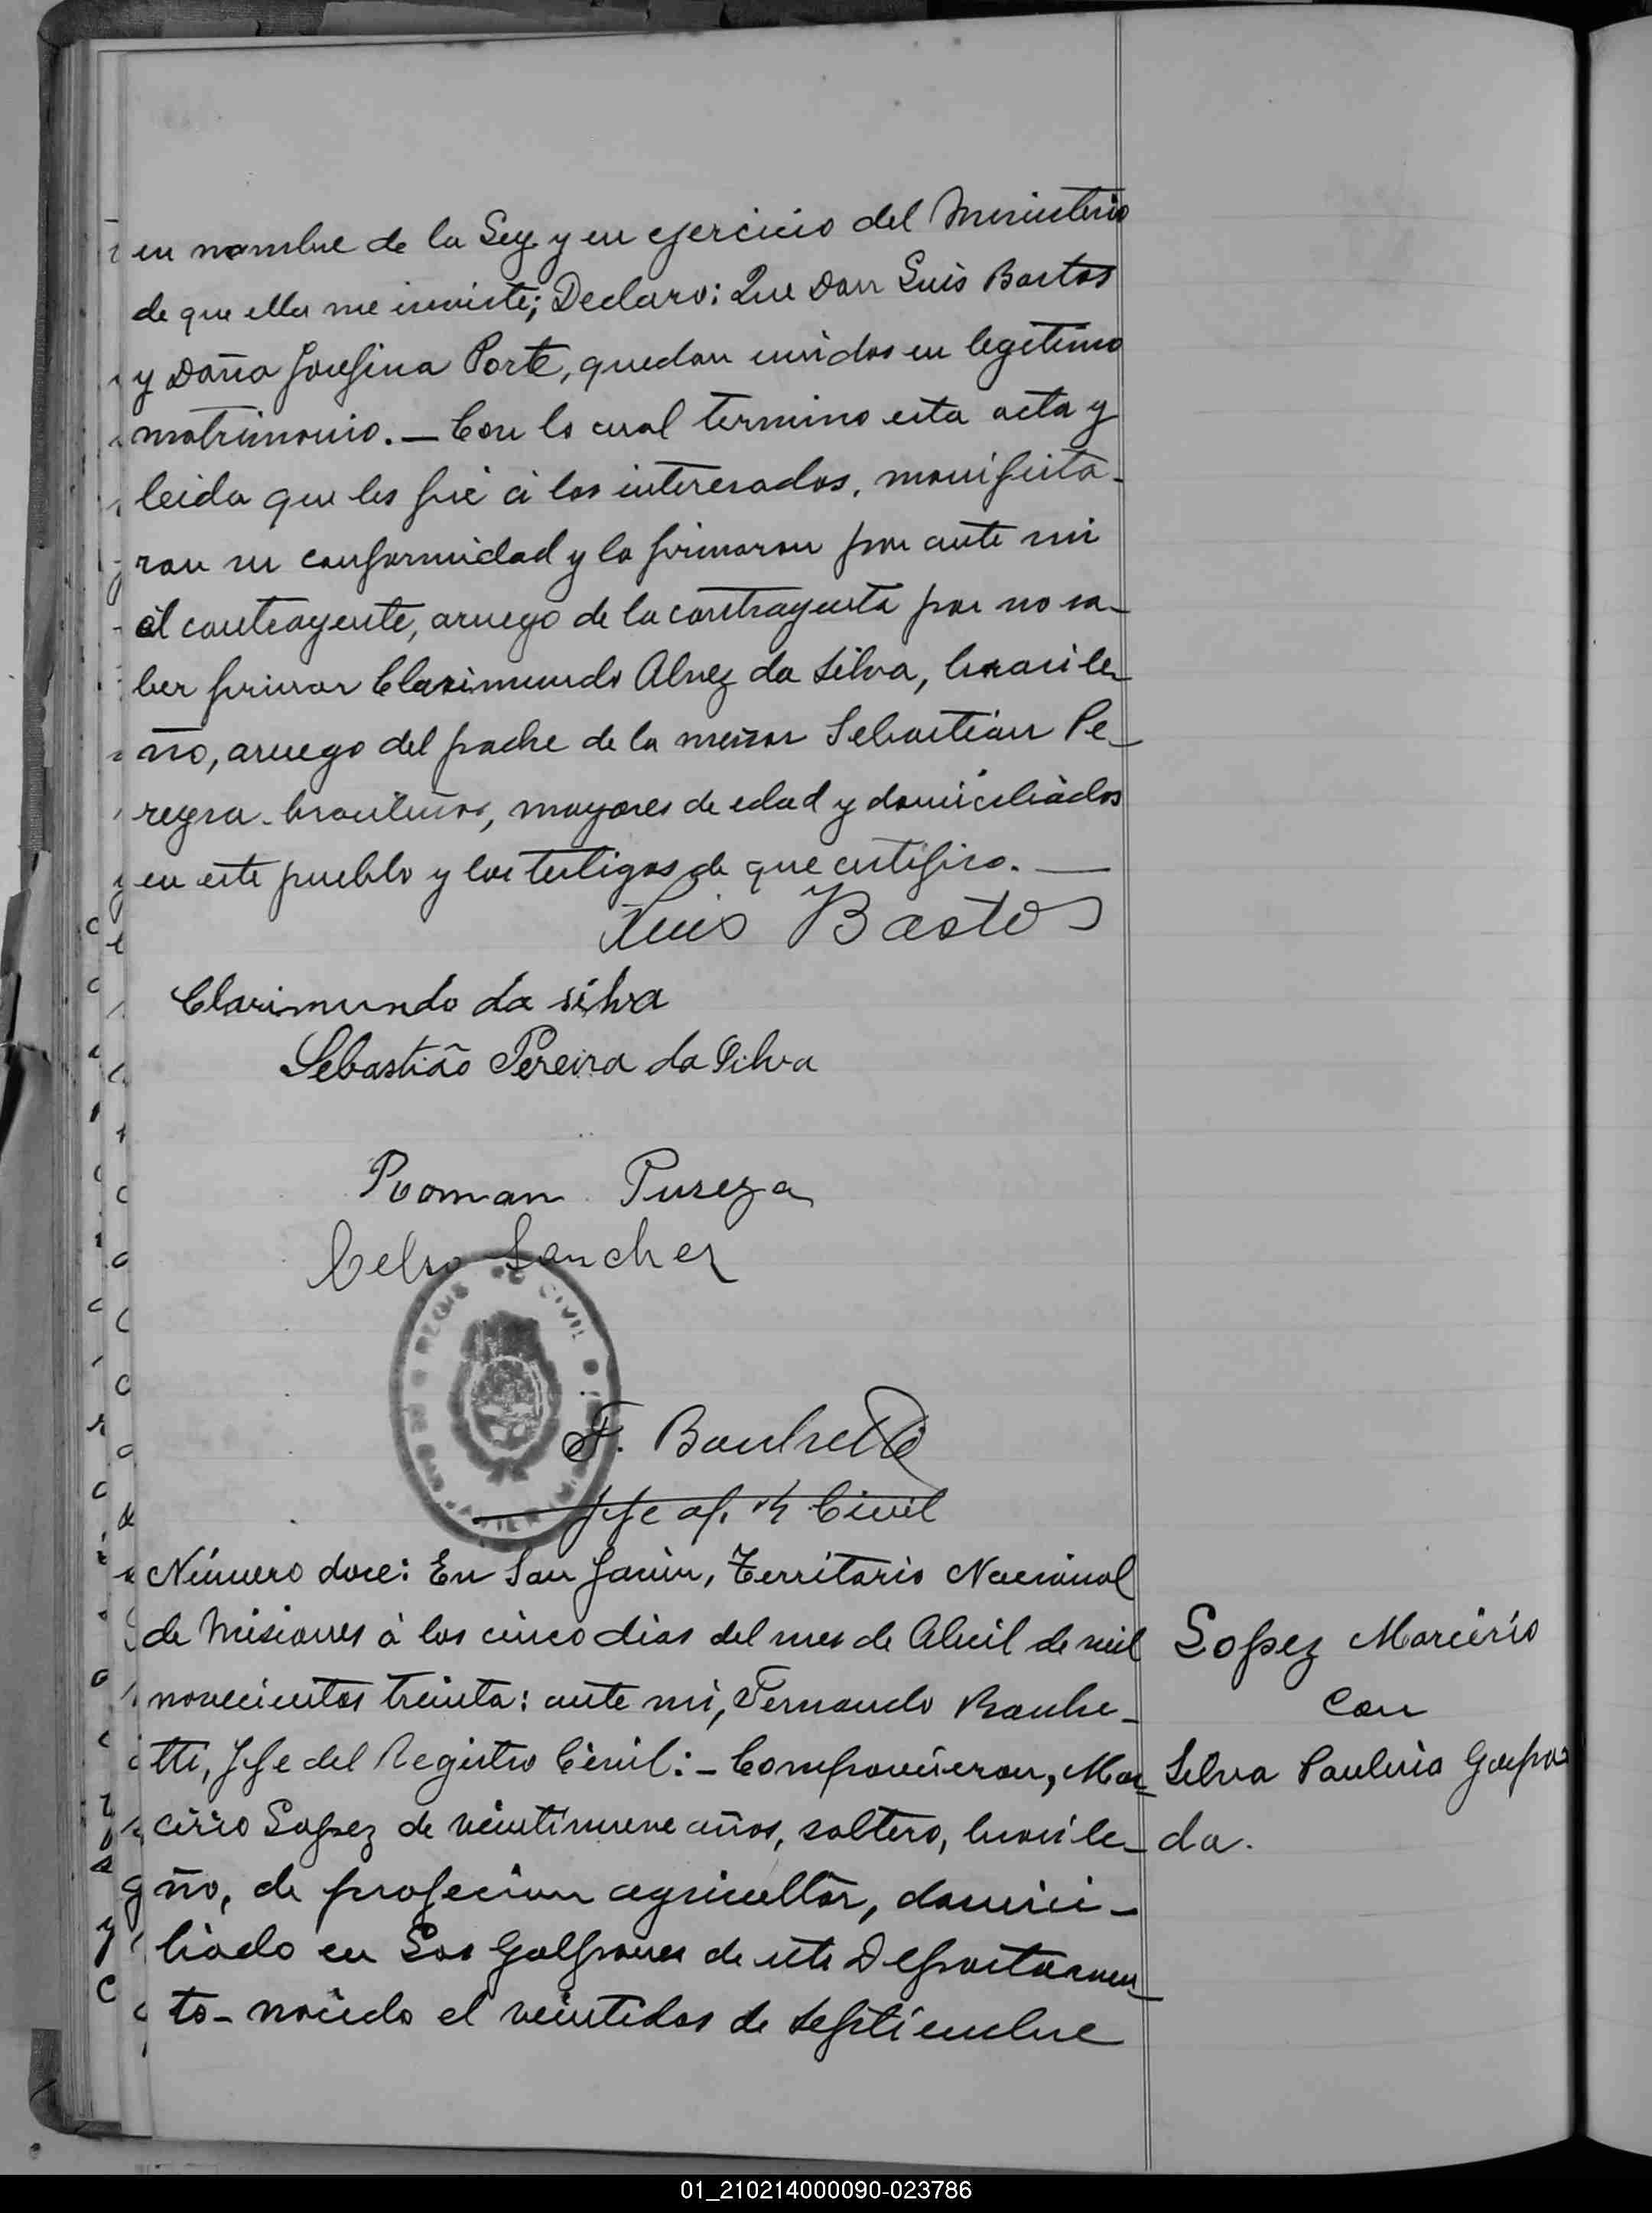 en nombre de la Ley y en ejercicio del Ministerio
de que ella me inviste; Declaro: Que Don Luis Bastos
y Doña Josefina Porte, quedan unidos en legitimo
matrimonio. — Con lo cual termino esta acta y
leida que les fué á los interesados, manifesta-
ron su conformidad y la firmaron por ante mi
el contrayente, aruego de la contrayente por no sa-
ber firmar Clarimundo Alvez da Silva, brasile-
ño, aruego del padre de la menor Sebastian Pe-
reyra - brasileños, mayores de edad y domiciliados
en este pueblo y los testigos de que certifico. —
Luis Bastos
Clarimundo da silva
Sebastião Pereira da Silva
Roman Pureza
Celso Sanchez
REGIS CIVIL
F. Banhetti
Jefe of. R Civil
Número doce: En San Javier, Territorio Nacional
de Misiones á los cinco dias del mes de Abril de mil
novecientos treinta: ante mi, Fernando Banhe-
tti, Jefe del Registro Civil: - Comparecieron, Mar-
cirio Lopez de veintinueve años, soltero, brasile-
ño, de profecion agricultor, domici-
liado en Los Galpones de este Departamen-
to - nacido el veintidos de Septiembre
Lopez Marcirio
con
Silva Paulina Gaspa
da.
01_210214000090-023786